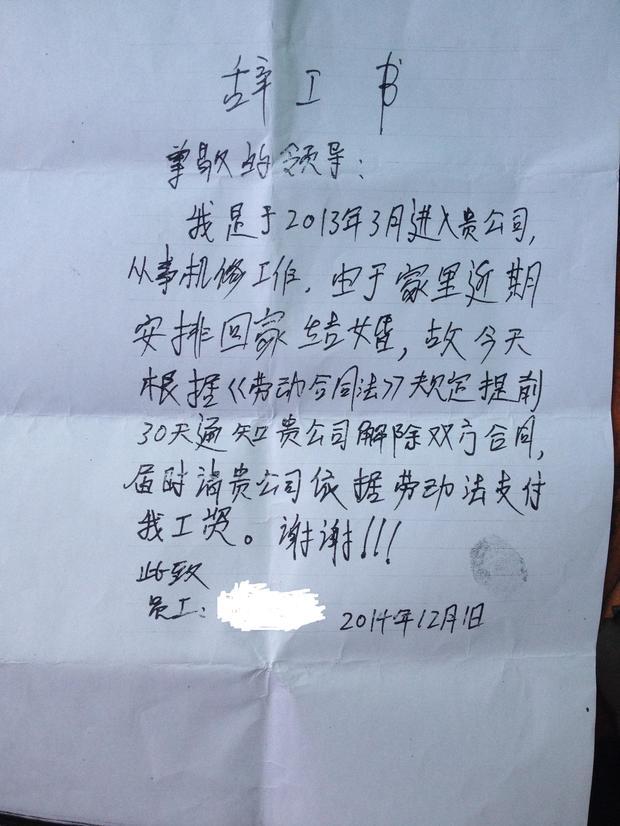 辞工书
尊敬的领导:
我是于2013年3月进入贵公司,
从事机修工作,由于家里近期
安排回家结婚,故今天
根据《劳动合同法》规定提前
30天通知贵公司解除双方合同,
届时请贵公司依据劳动法支付
我工资。谢谢!!!
此致
员工:
2014年12月1日